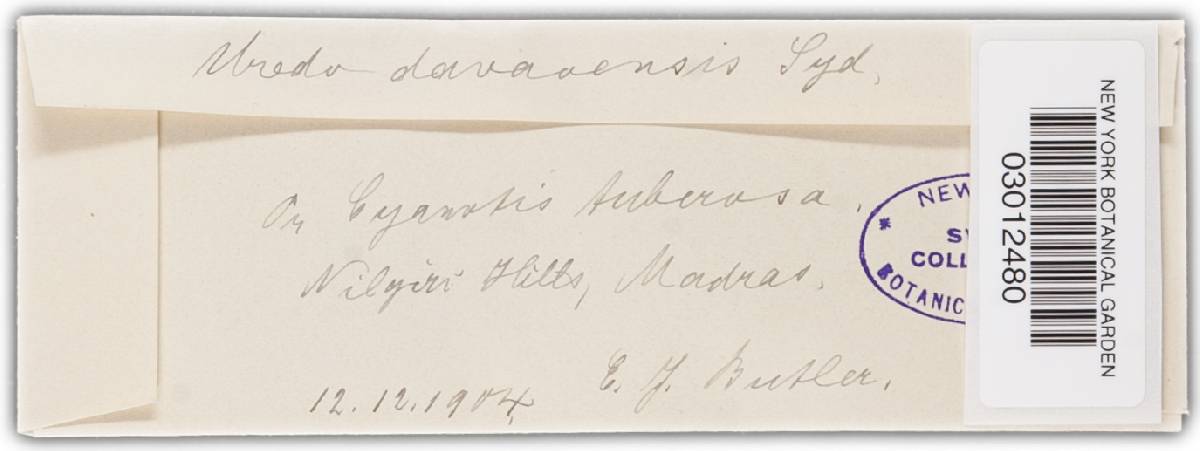 Uredo davaoensis Syd.
On Cyanotis tuberosa.
Nilgiri Hills, Madras.
E. J. Butler.
12.12.1904.
NEW
SY
COLL
BOTANIC
NEW YORK BOTANICAL GARDEN
03012480